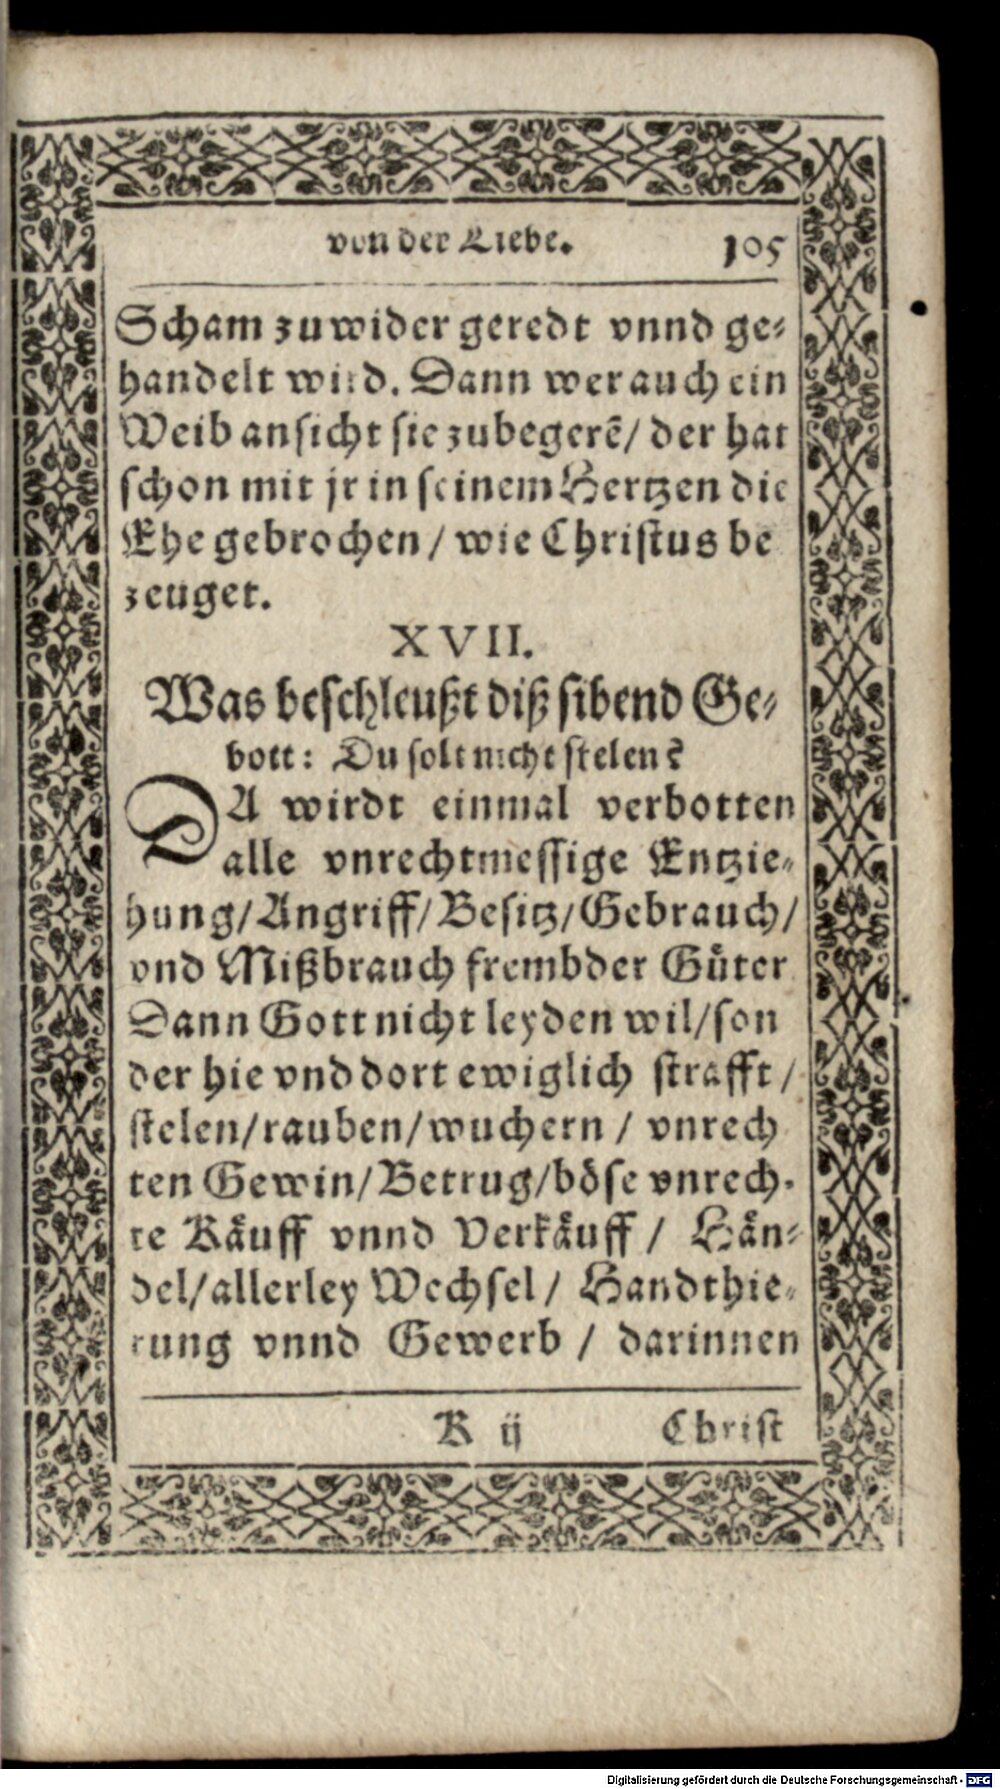 von der Liebe. 105
Scham zuwider geredt vnnd ge⸗
handelt wird. Dann wer auch ein
Weib ansicht sie zubegerẽ/ der hat
schon mit jr in seinem Hertzen die
Ehe gebrochen / wie Christus be
zeuget.
XVII.
Was beschleußt diß sibend Ge⸗
bott: Du solt nicht stelen?
DA wirdt einmal verbotten
alle vnrechtmessige Entzie⸗
hung/Angriff/Besitz/Gebrauch/
vnd Mißbrauch frembder Güter
Dann Gott nicht leyden wil/son
der hie vnd dort ewiglich strafft /
stelen/rauben/wuchern / vnrech
ten Gewin/Betrug/böse vnrech⸗
te Käuff vnnd Verkäuff / Hän⸗
del/allerley Wechsel / Handthie⸗
rung vnnd Gewerb / darinnen
K ij Christ
Digitalisierung gefördert durch die Deutsche Forschungsgemeinschaft - DFG